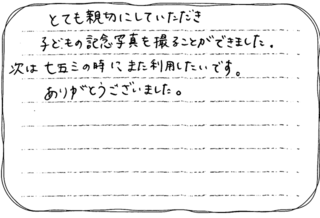 とても親切にしていただき
子どもの記念写真も撮ることができました.
次は七五三の時にまた利用したいです。
ありがとうございました。